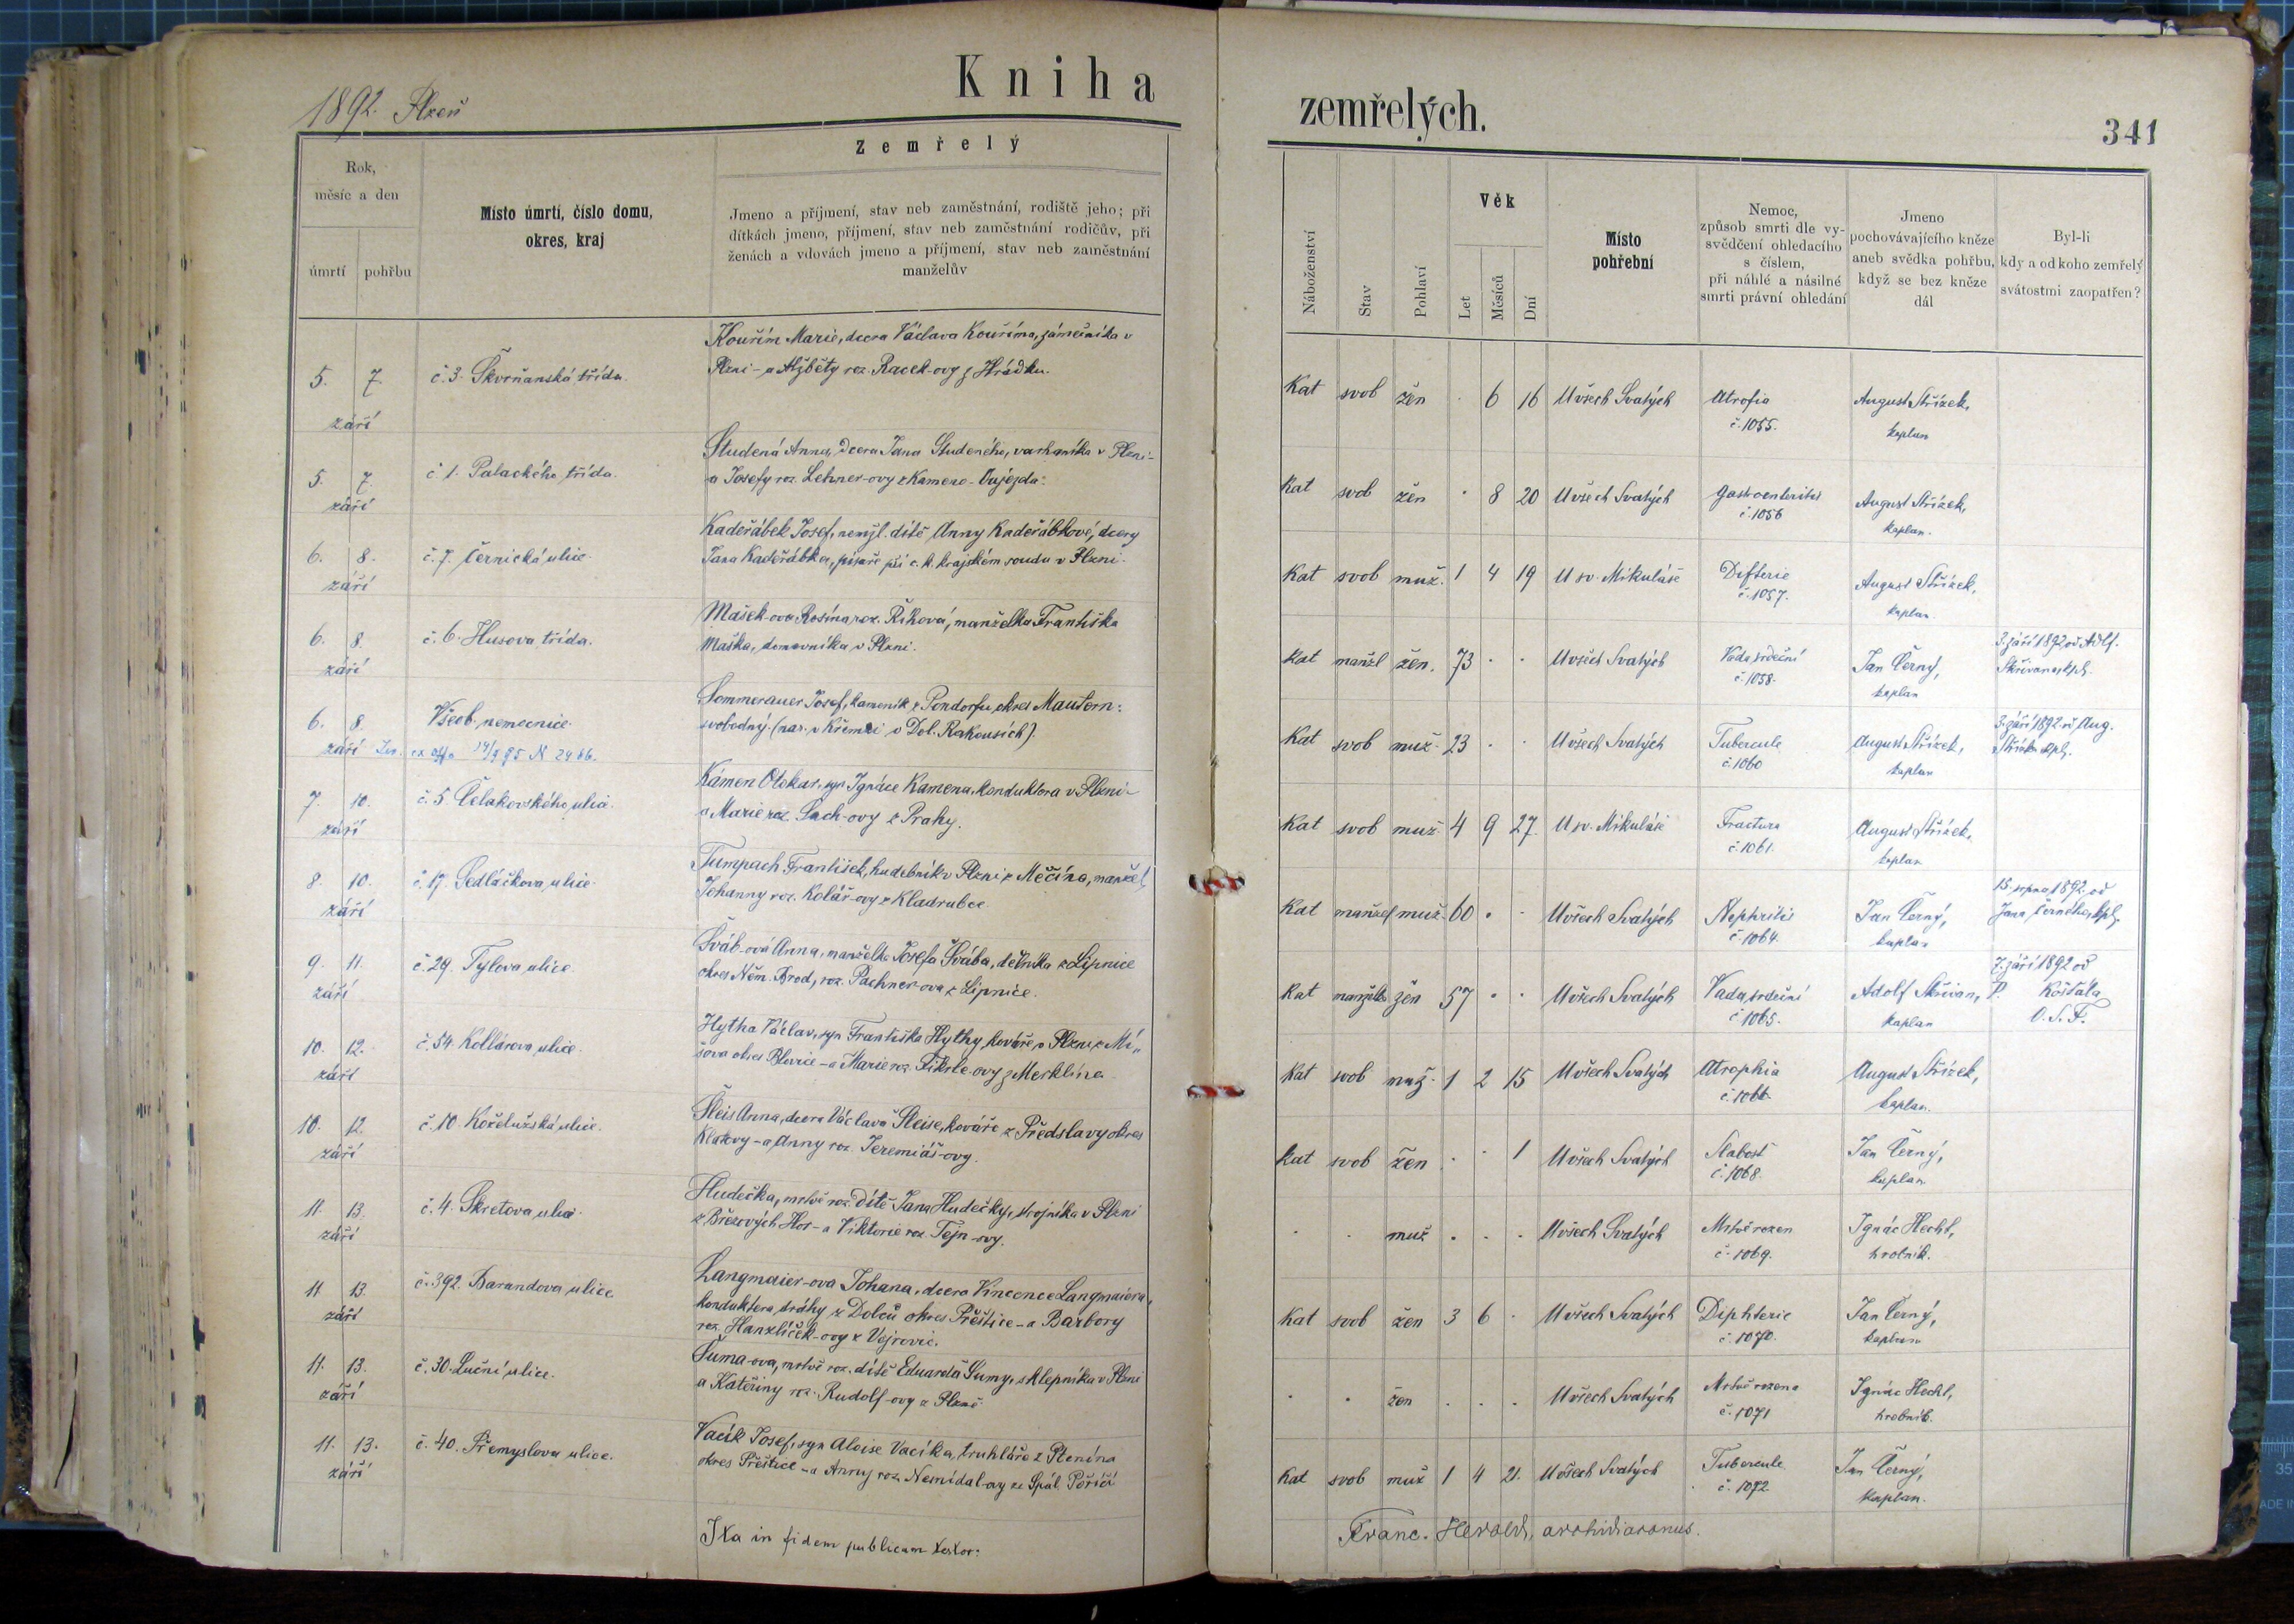 1892. Plzeň
Kniha
zemřelých.
341
Rok,
měsíc a den
úmrtí
pohřbu
Místo úmrtí, číslo domu,
okres, kraj
Zemřelý
Jmeno a příjmení, stav neb zaměstnání, rodiště jeho; při
dítkách jmeno, příjmení, stav neb zaměstnání rodičův, při
ženách a vdovách jmeno a příjmení, stav neb zaměstnání
manželův
Náboženství
Stav
Pohlaví
Věk
Let
Měsíců
Dní
Místo
pohřební
Nemoc,
způsob smrti dle vy-
svědčení ohledacího
s číslem,
při náhlé a násilné
smrti právní ohledání
Jmeno
pochovávajícího kněze
aneb svědka pohřbu,
když se bez kněze
dál
Byl-li
kdy a od koho zemřelý
svátostmi zaopatřen?
Kouřím Marie, dcera Václava Kouříma, zámečníka v
5. 7. č. 3. Škvrňanská třída. Plzni - a Alžběty roz. Racek-ovy z Hrádku.
září
Kat svob žen . 6 16 U všech Svatých Atrofia August Střízek,
č. 1055. kaplan
Studená Anna, dcera Jana Studeného, varhaníka v Plzni -
5. 7. č. 1. Palackého třída. a Josefy roz. Lehner-ovy z Kameno-Oujezda.
září
Kat svob žen . 8 20 U všech Svatých Gastroenteritis August Střízek,
č. 1056 kaplan.
Kadeřábek Josef, nemžl. dítě Anny Kadeřábkové, dcery
6. 8. č. 7. Černická ulice. Jana Kadeřábka, písaře při c. k. krajském soudu v Plzni.
září
Kat svob muž. 1 4 19 U sv. Mikuláše Difterie August Střízek,
č. 1057. kaplan.
Mašek-ova Rosina roz. Řiková, manželka Františka
6. 8. č. 6. Husova třída. Maška, domovníka v Plzni.
září
3. září 1892 od Adlf.
Kat manžl žen. 73 . . U všech Svatých Vada srdeční Jan Černý, Skřivana, kpl.
č. 1058. kaplan
Sommerauer Josef, kameník z Pondorfu, okres Mautern:
6. 8. Všeob. nemocnice. svobodný. (nar. v Křemži v Dol. Rakousích).
září ex offo 14/9 95 N 2466.
3. září 1892 od Aug.
Kat svob muž. 23 . . U všech Svatých Tubercule August Střízek, Střízka kpl.
č. 1060 kaplan
Kámen Otokar, syn Ignáce Kamena, konduktora v Plzni -
7. 10. č. 5. Čelakovského ulice. a Marie roz. Sach-ovy z Prahy.
září
Kat svob muž. 4 9 27. U sv. Mikuláše Fractura August Střízek,
č. 1061. kaplan
Tumpach František, hudebník v Plzni z Měčína, manžel
8. 10. č. 17. Sedláčkova ulice. Johanny roz. Kolář-ovy z Kladrubce.
září
15. srpna 1892 od
Kat manžel muž. 60 . . U všech Svatých Nephritis Jan Černý, Jana Černého, kpl.
č. 1064. kaplan
Šváb-ová Anna, manželka Josefa Švába, dělníka z Lipnice
9. 11. č. 29. Tylova ulice. okres Něm. Brod, roz. Pachner-ova z Lipnice.
září
7. září 1892 od
Kat manželk žen 57 . . U všech Svatých Vada srdeční Adolf Skřivan, P. Košťála
č. 1065. kaplan O. S. F.
Hytha Václav, syn Františka Hythy, kováře v Plzni z Mí-
10. 12. č. 54. Kollárova ulice. šova okres Blovice - a Marie roz. Fikrle-ovy z Merklína
září
Kat svob muž. 1 2 15 U všech Svatých Atrophia August Střízek,
č. 1066. kaplan.
Šleis Anna, dcera Václava Šleise, kováře z Předslavy okres
10. 12. č. 10. Koželužská ulice. Klatovy - a Anny roz. Jeremiáš-ovy.
září
Kat svob žen . . 1 U všech Svatých Slabost Jan Černý,
č. 1068. kaplan
Hudečka, mrtvě roz. dítě Jana Hudečky, strojníka v Plzni
11. 13. č. 4. Škretova ulice. z Březových Hor - a Viktorie roz. Tejn-ovy.
září
. . muž . . . U všech Svatých Mrtvě rozen Ignác Hecht,
č. 1069. hrobník.
Langmaier-ova Johana, dcera Vincence Langmaiera,
11 13. č. 392. Barandova ulice. konduktera dráhy z Dolců okres Přeštice - a Barbory
září roz. Hanzlíček-ovy z Vejrovic.
Kat svob žen 3 6 . U všech Svatých Diphterie Jan Černý,
č. 1070. kaplan
Šuma-ova, mrtvě roz. dítě Eduarda Šumy, sklepníka v Plzni
11. 13. č. 30. Luční ulice. a Kateřiny roz. Rudolf-ovy z Plzně.
září
. . žen . . . U všech Svatých Mrtvě rozena Ignác Hecht,
č. 1071 hrobník.
Vacík Josef, syn Aloise Vacíka, truhláře z Ptenína
11. 13. č. 40. Přemyslova ulice. okres Přeštice - a Anny roz. Nemidal-ovy ze Spál. Poříčí
září
Kat svob muž 1 4 21. U všech Svatých Tubercule Jan Černý,
č. 1072 kaplan.
Ita in fidem publicam testor:
Franc. Herold, archidiaconus.